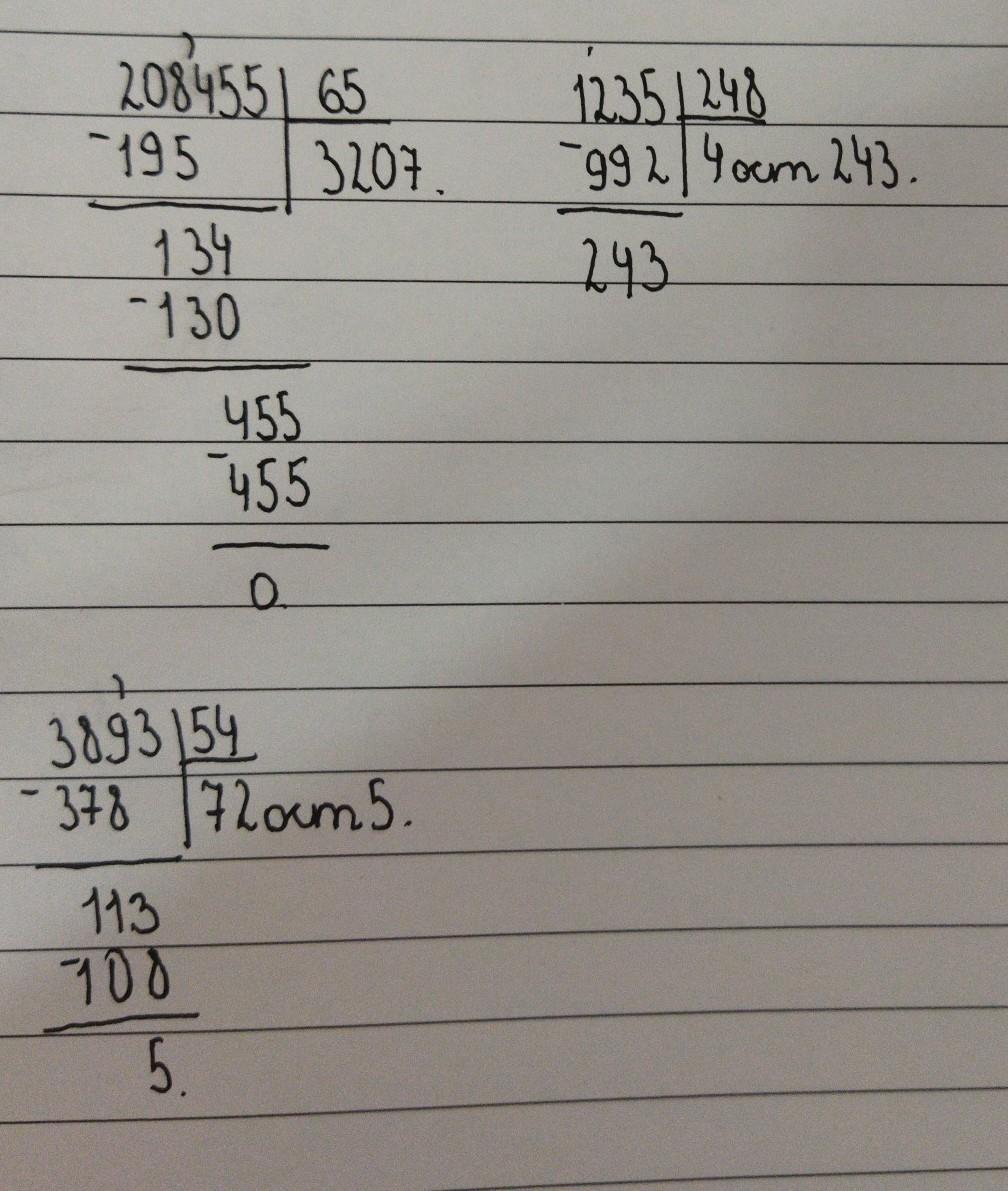 208455 65
-195 3207.
134
-130
455
-455
0
1235 248
-992 4 ост 243.
243
3893 54
-378 72 ост 5.
113
-108
5.